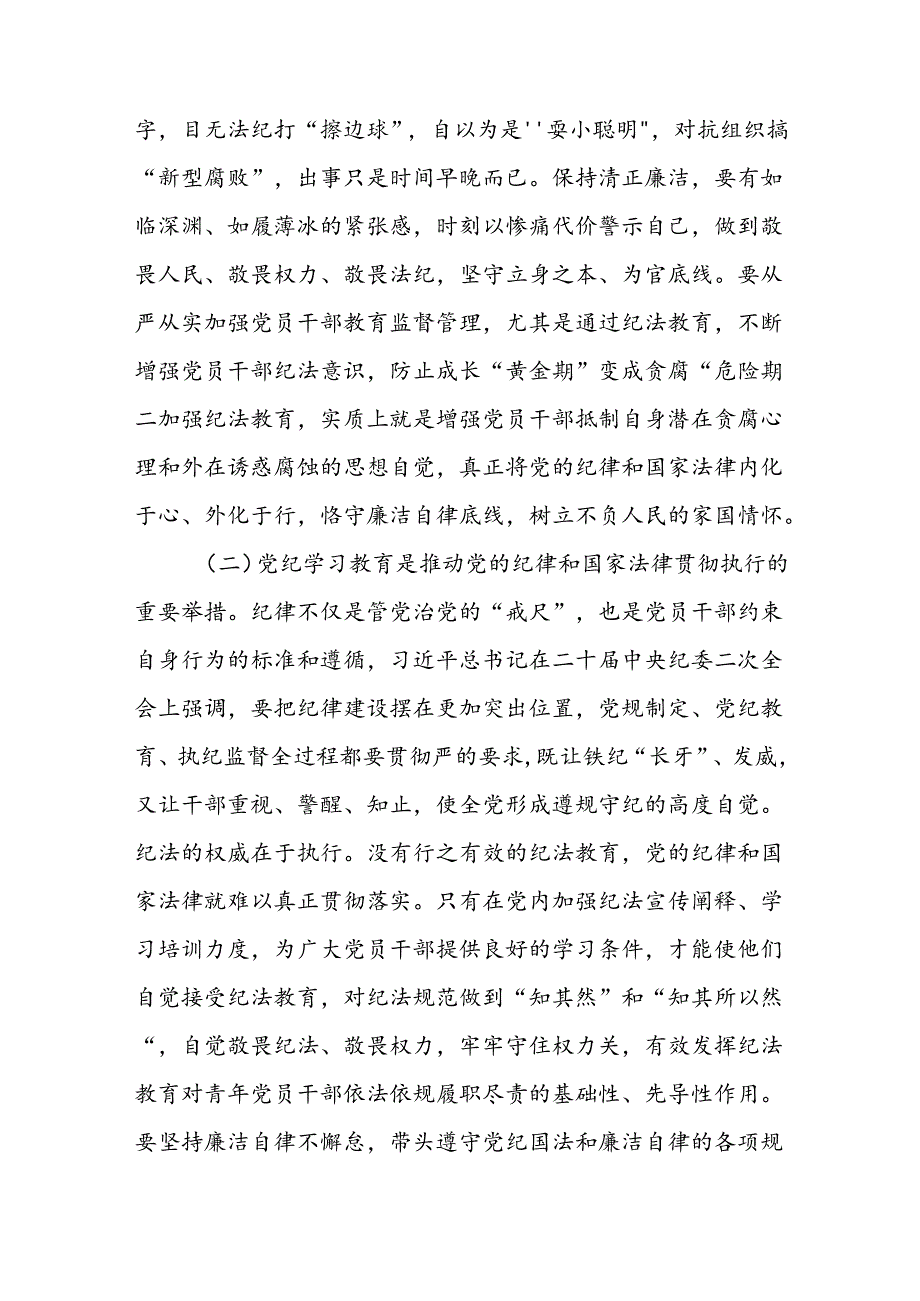 字，目无法纪打“擦边球”，自以为是''耍小聪明"，对抗组织搞
“新型腐败”，出事只是时间早晚而已。保持清正廉洁，要有如
临深渊、如履薄冰的紧张感，时刻以惨痛代价警示自己，做到敬
畏人民、敬畏权力、敬畏法纪，坚守立身之本、为官底线。要从
严从实加强党员干部教育监督管理，尤其是通过纪法教育，不断
增强党员干部纪法意识，防止成长“黄金期”变成贪腐“危险期
二加强纪法教育，实质上就是增强党员干部抵制自身潜在贪腐心
理和外在诱惑腐蚀的思想自觉，真正将党的纪律和国家法律内化
于心、外化于行，恪守廉洁自律底线，树立不负人民的家国情怀。
（二）党纪学习教育是推动党的纪律和国家法律贯彻执行的
重要举措。纪律不仅是管党治党的“戒尺”，也是党员干部约束
自身行为的标准和遵循，习近平总书记在二十届中央纪委二次全
会上强调，要把纪律建设摆在更加突出位置，党规制定、党纪教
育、执纪监督全过程都要贯彻严的要求,既让铁纪“长牙”、发威，
又让干部重视、警醒、知止，使全党形成遵规守纪的高度自觉。
纪法的权威在于执行。没有行之有效的纪法教育，党的纪律和国
家法律就难以真正贯彻落实。只有在党内加强纪法宣传阐释、学
习培训力度，为广大党员干部提供良好的学习条件，才能使他们
自觉接受纪法教育，对纪法规范做到“知其然”和“知其所以然
“，自觉敬畏纪法、敬畏权力，牢牢守住权力关，有效发挥纪法
教育对青年党员干部依法依规履职尽责的基础性、先导性作用。
要坚持廉洁自律不懈怠，带头遵守党纪国法和廉洁自律的各项规